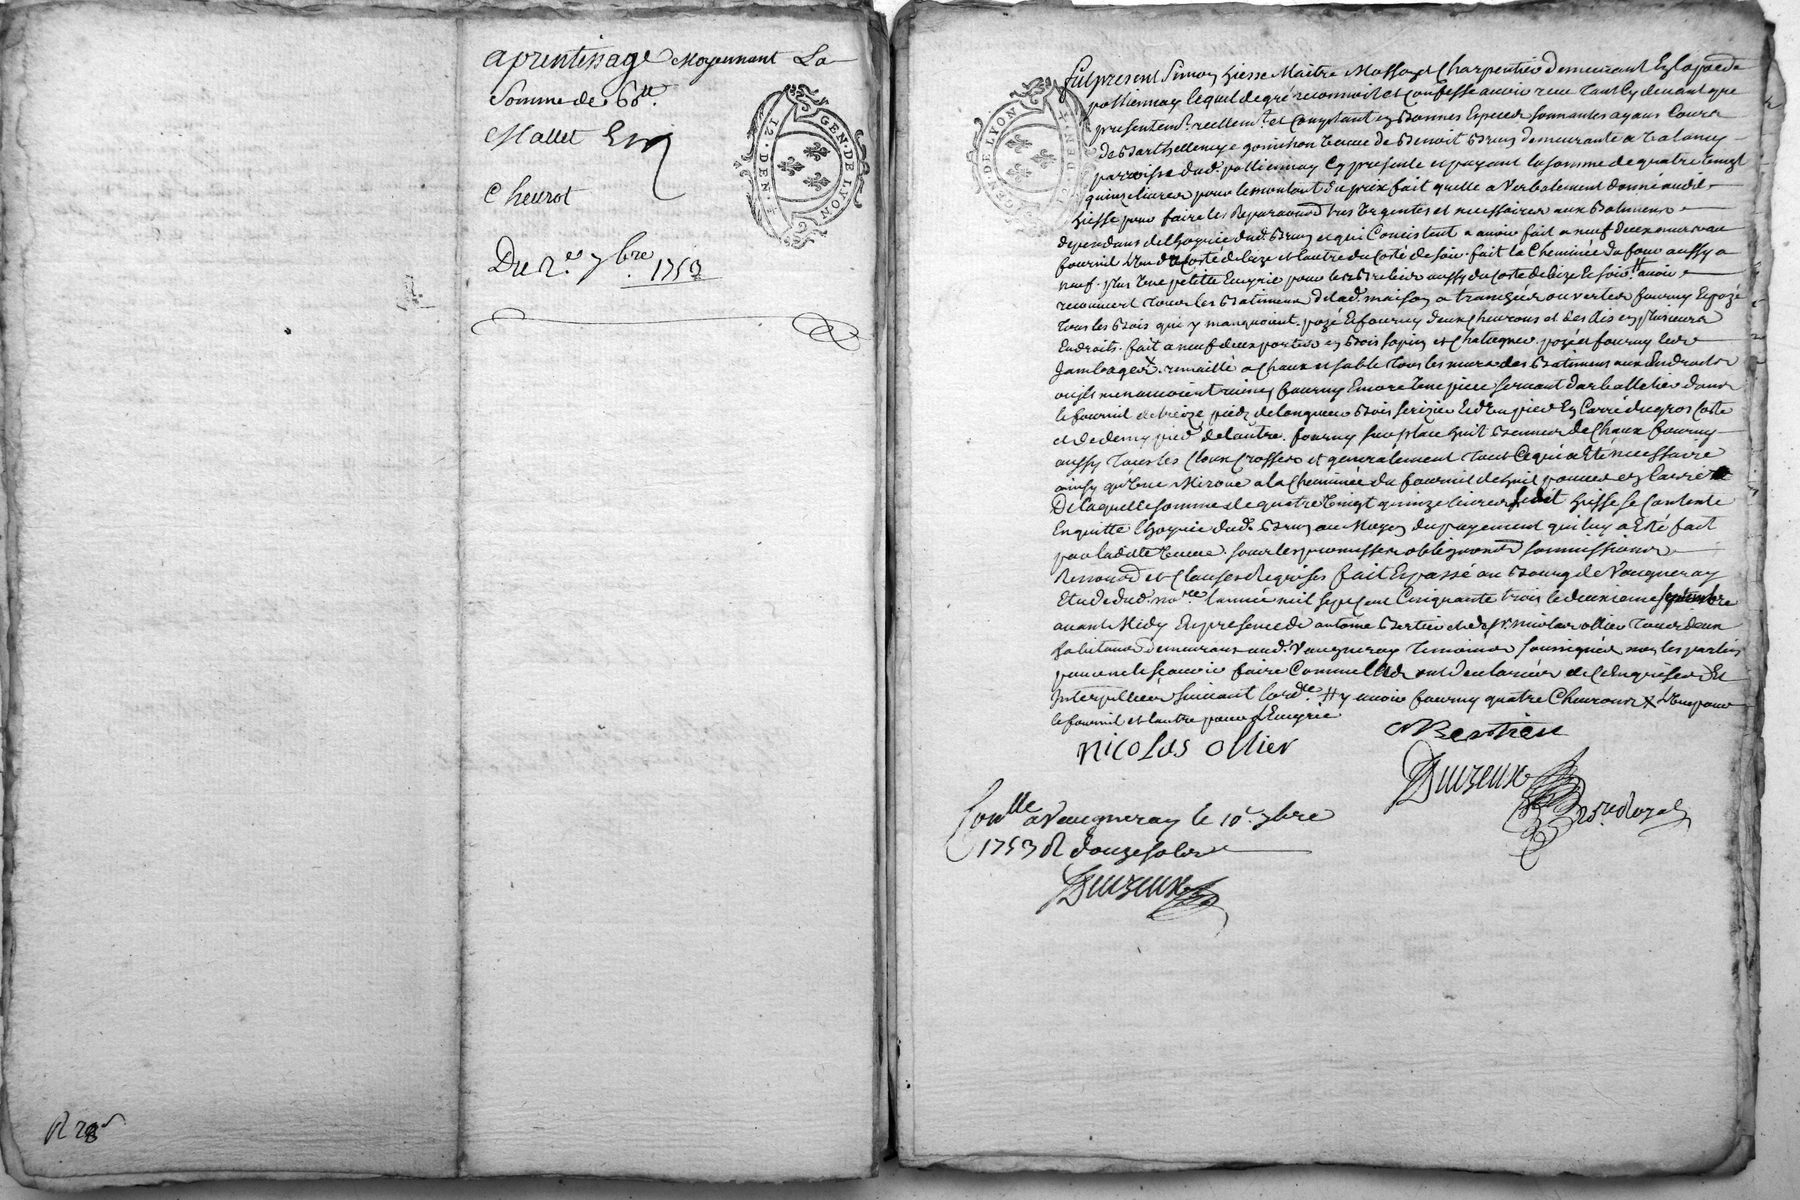 aprentissage Moyennant La
Somme de 60ᵗᵗ.
Mallet En
Cheurot
Du 2.e 7bre 1753
GEN. DE LYON
12. DEN. F
R 28s
GEN. DE LYON
fut present Simon hiesse Maitre Masson et Charpentier demeurant En la psse de
pollionnay lequel de gré reconnoit et Confesse avoir receu tant Cy devant que
presentemt. reellemt. et Comptant en Bonnes Especes sonnantes ayans Cours
de Barthellemye gonichon veuve de Benoit Brun demeurante a
parroisse dud. pollionnay Cy presente et payant la somme de quatre vingt
quinze livres pour le montant du prix fait quelle a verbalement donné audit
hiesse pour faire les Reparaōns tres Urgentes et necessaires aux Batimens
dependans de lhoyrie dud. Brun et qui Consistent a avoir fait a neuf deux
fournil L'un du Costé de bize et lautre du Costé de soir. fait la Cheminée du four aussy a
neuf. plus Une petite Ecuyrie pour les Brebis aussy du Costé de bize Et soir # avoir
recouvert tous les Batimens de lad. maison a tranchées ouvertes fourny Et pozé
tous les Bois qui y manquoient. pozé Et fourny deux Chevrons et Des en plusieurs
Endroits. fait a neuf deux portes en Bois sapin et Chateigner. pozé et fourny leurs
Jambages X. remaillé a Chaux et sable tous les murs des Batimens aux Endroits
ou ils menassoient ruine, fourny Encore Une piece servant d'arballetier dans
le fournil de treize pieds de longueur Bois serizier Et d'Un pied En Carré du gros Costé
et de demy pied de lautre. fourny sur place huit Bennes de Chaux fourny
aussy tous les Cloux Crosses et generalement tout Ce qui a Eté necessaire
ainsy qu'Une a la Cheminée du fournil de huit pouces en Carré
De laquelle somme de quatre Vingt quinze livres ledit hiesse se Contente
En quitte lhoyrie dud. Brun au Moyen du payement qui luy a Eté fait
par ladite Veuve. sous les promesses obligaōns soumissions
Renonōns et Clauses Requises fait Et passé au Bourg de Vaugneray
Etude dud. nore. lannée mil sept Cent Cinquante trois le deuxieme septembre
avant Midy En presence de antoine Bertier et de Sr. nicolas ollier tous deux
habitans demeurans aud. Vaugneray temoins soussignés non les parties
pour ne le sçavoir faire Comme Elles ont declarées de Ce Enquises Et
Interpellées suivant lordce. # y avoir fourny quatre Chevrons X Une pour
le fournil et lautre pour l'Ecuyrie
nicolas ollier
ABertier
Duizeux
nore. Royal
Conlle a Vaugneray le 10e. 7bre
1753 R douze sols
Duizeux